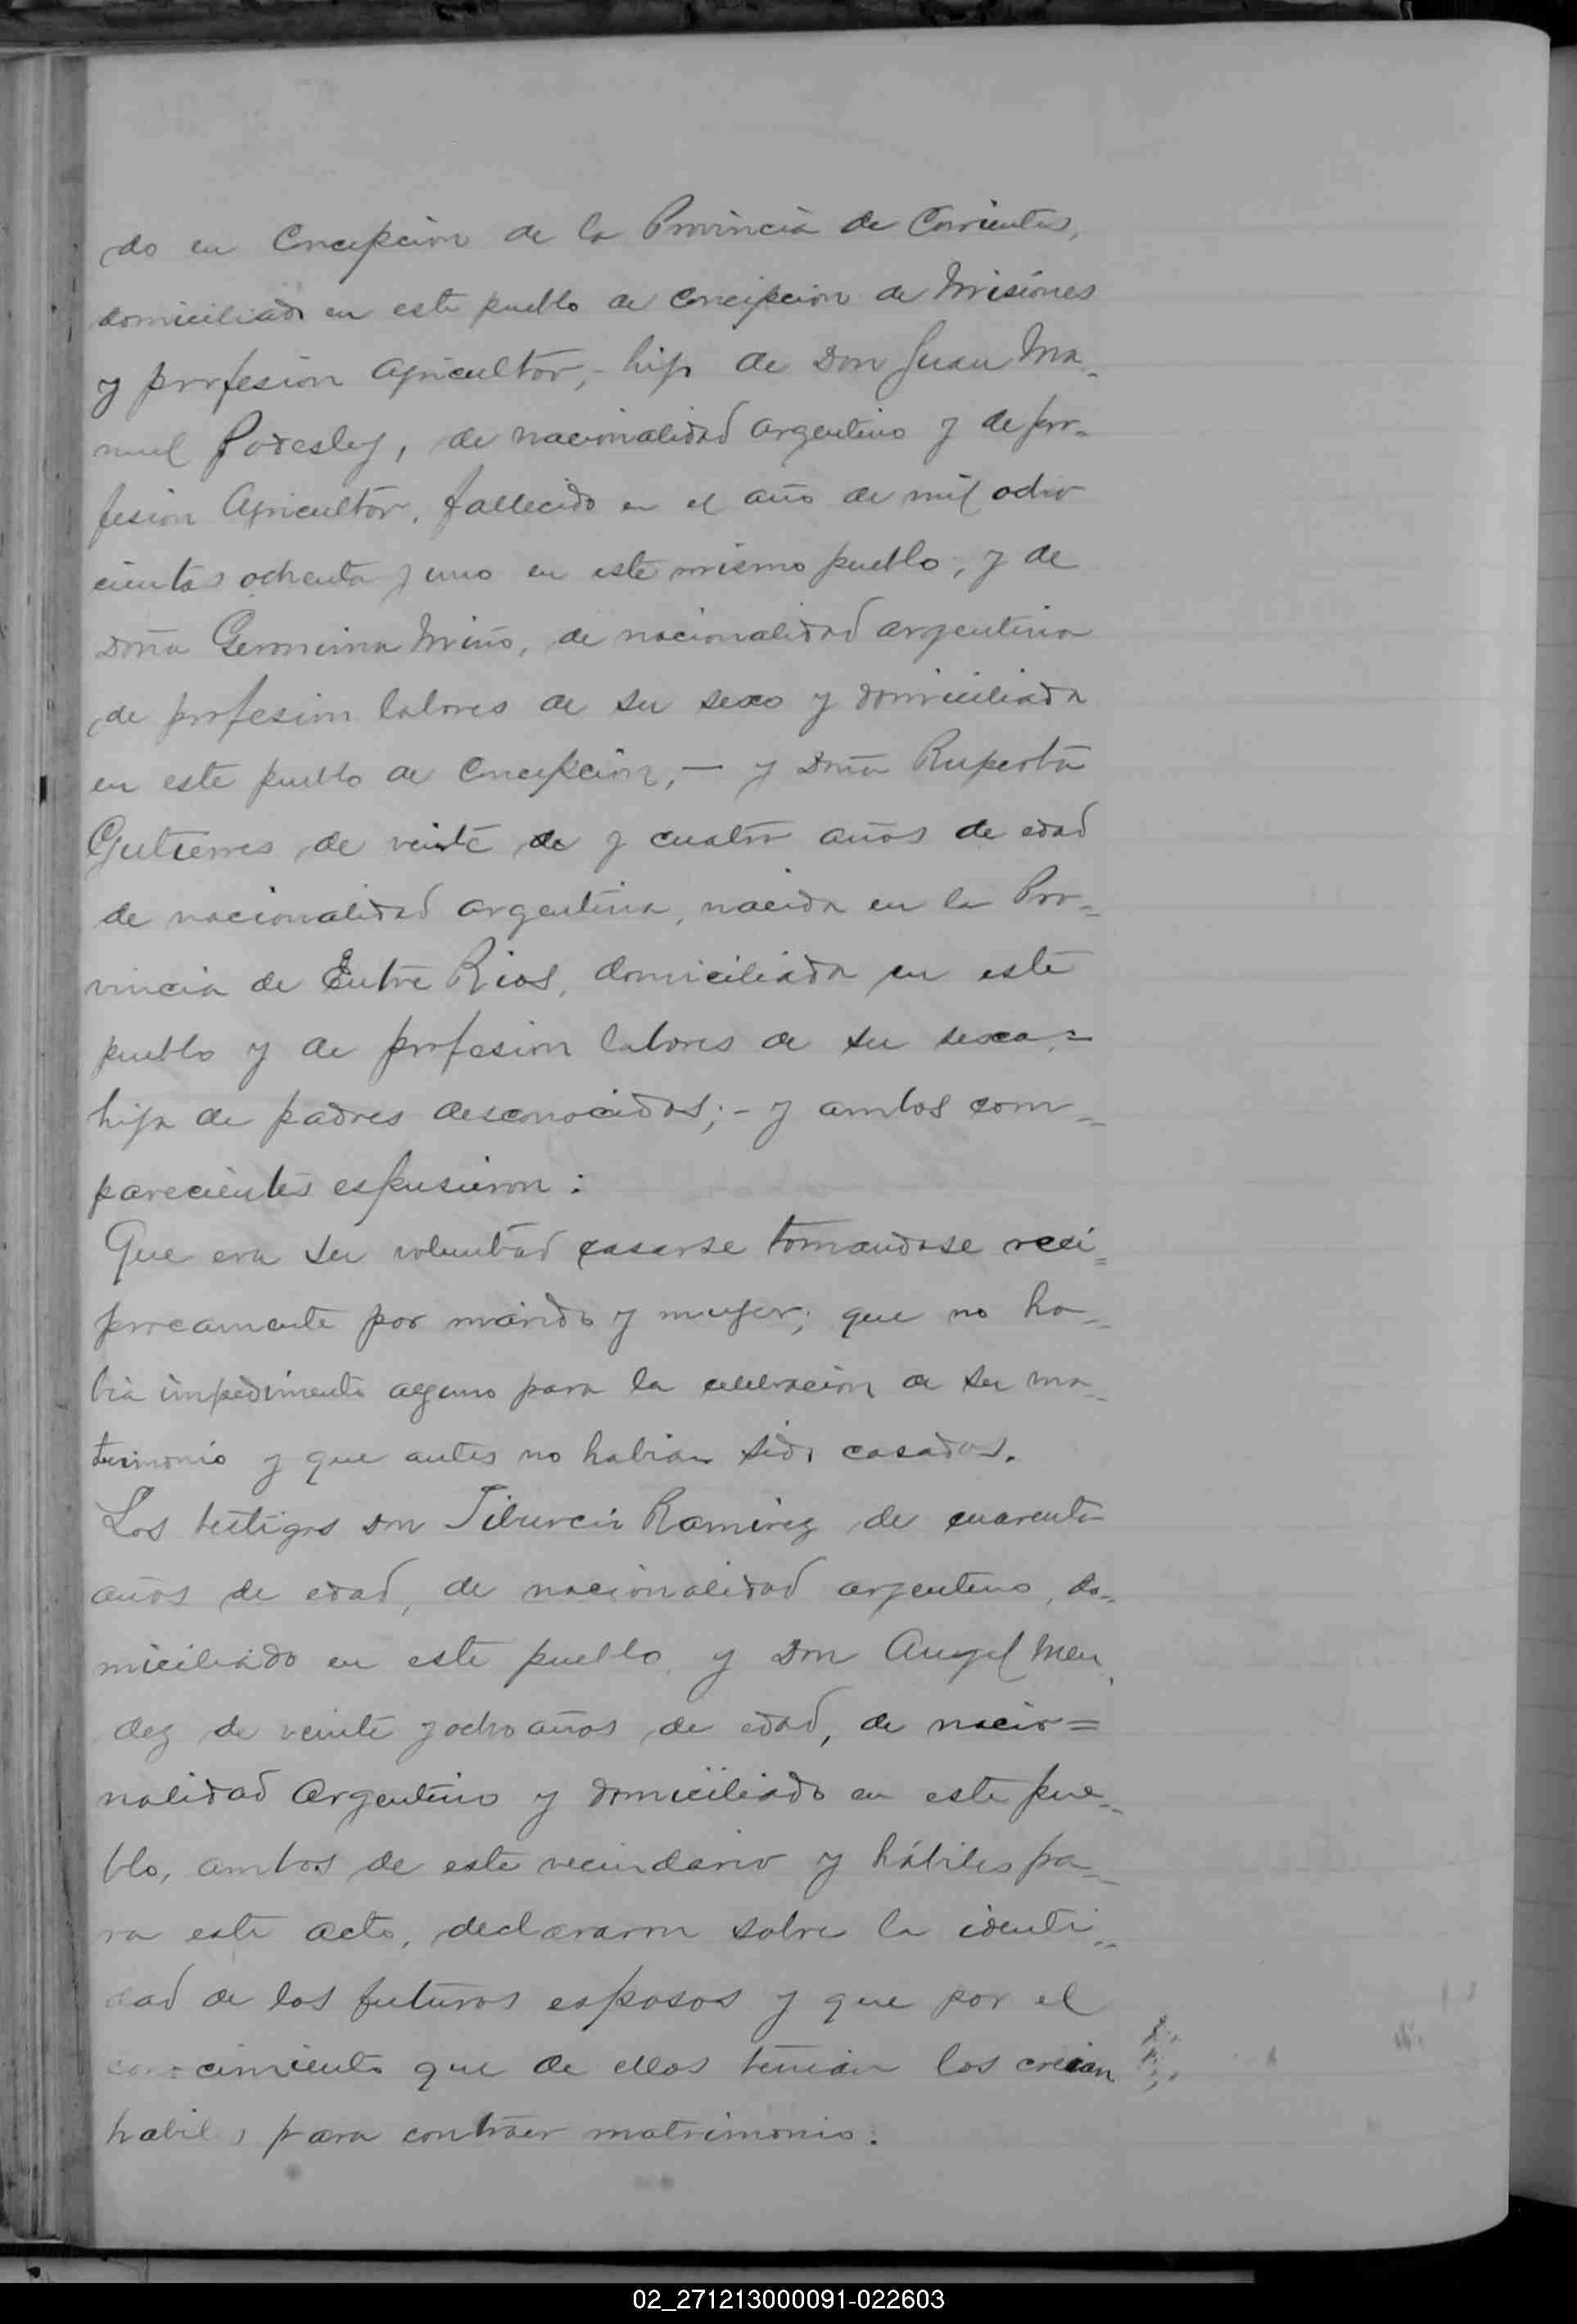 do en Concepcion de la Provincia de Corrientes,
domiciliado en este pueblo de Concepcion de Misiones
y profesion agricultor,- hijo de Don Juan Ma-
nuel, de nacionalidad argentino y de pro-
fesion Agricultor, fallecido en el año de mil ocho
cientos ochenta y uno en este mismo pueblo, y de
Doña Geronima Miño, de nacionalidad argentina
de profesion labores de su sexo y domiciliada
en este pueblo de Concepcion,- y Doña Ruperta
Gutierres de veinte de y cuatro años de edad
de nacionalidad argentina, nacida en la Pro-
vincia de Entre Rios, domiciliada en este
pueblo y de profesion labores de su sexo,=
hija de padres desconocidos;- y ambos com-
parecientes espusieron:
Que era su voluntad casarse tomandose reci=
procamente por marido y mujer; que no ha-
bia impedimento alguno para la celebracion de su ma-
trimonio y que antes no habian sido casados.
Los testigos Don Tiburcio Ramirez de cuarenta
años de edad, de nacionalidad argentino, do-
miciliado en este pueblo y Don Angel Men
dez de veinte y ocho años de edad, de nacio=
nalidad Argentino y domiciliado en este pue-
blo, ambos de este vecindario y hábiles pa-
ra este acto, declararon sobre la identi-
dad de los futuros esposos y que por el
conocimiento que de ellos tenian los creian
habiles para contraer matrimonio.
02_271213000091-022603